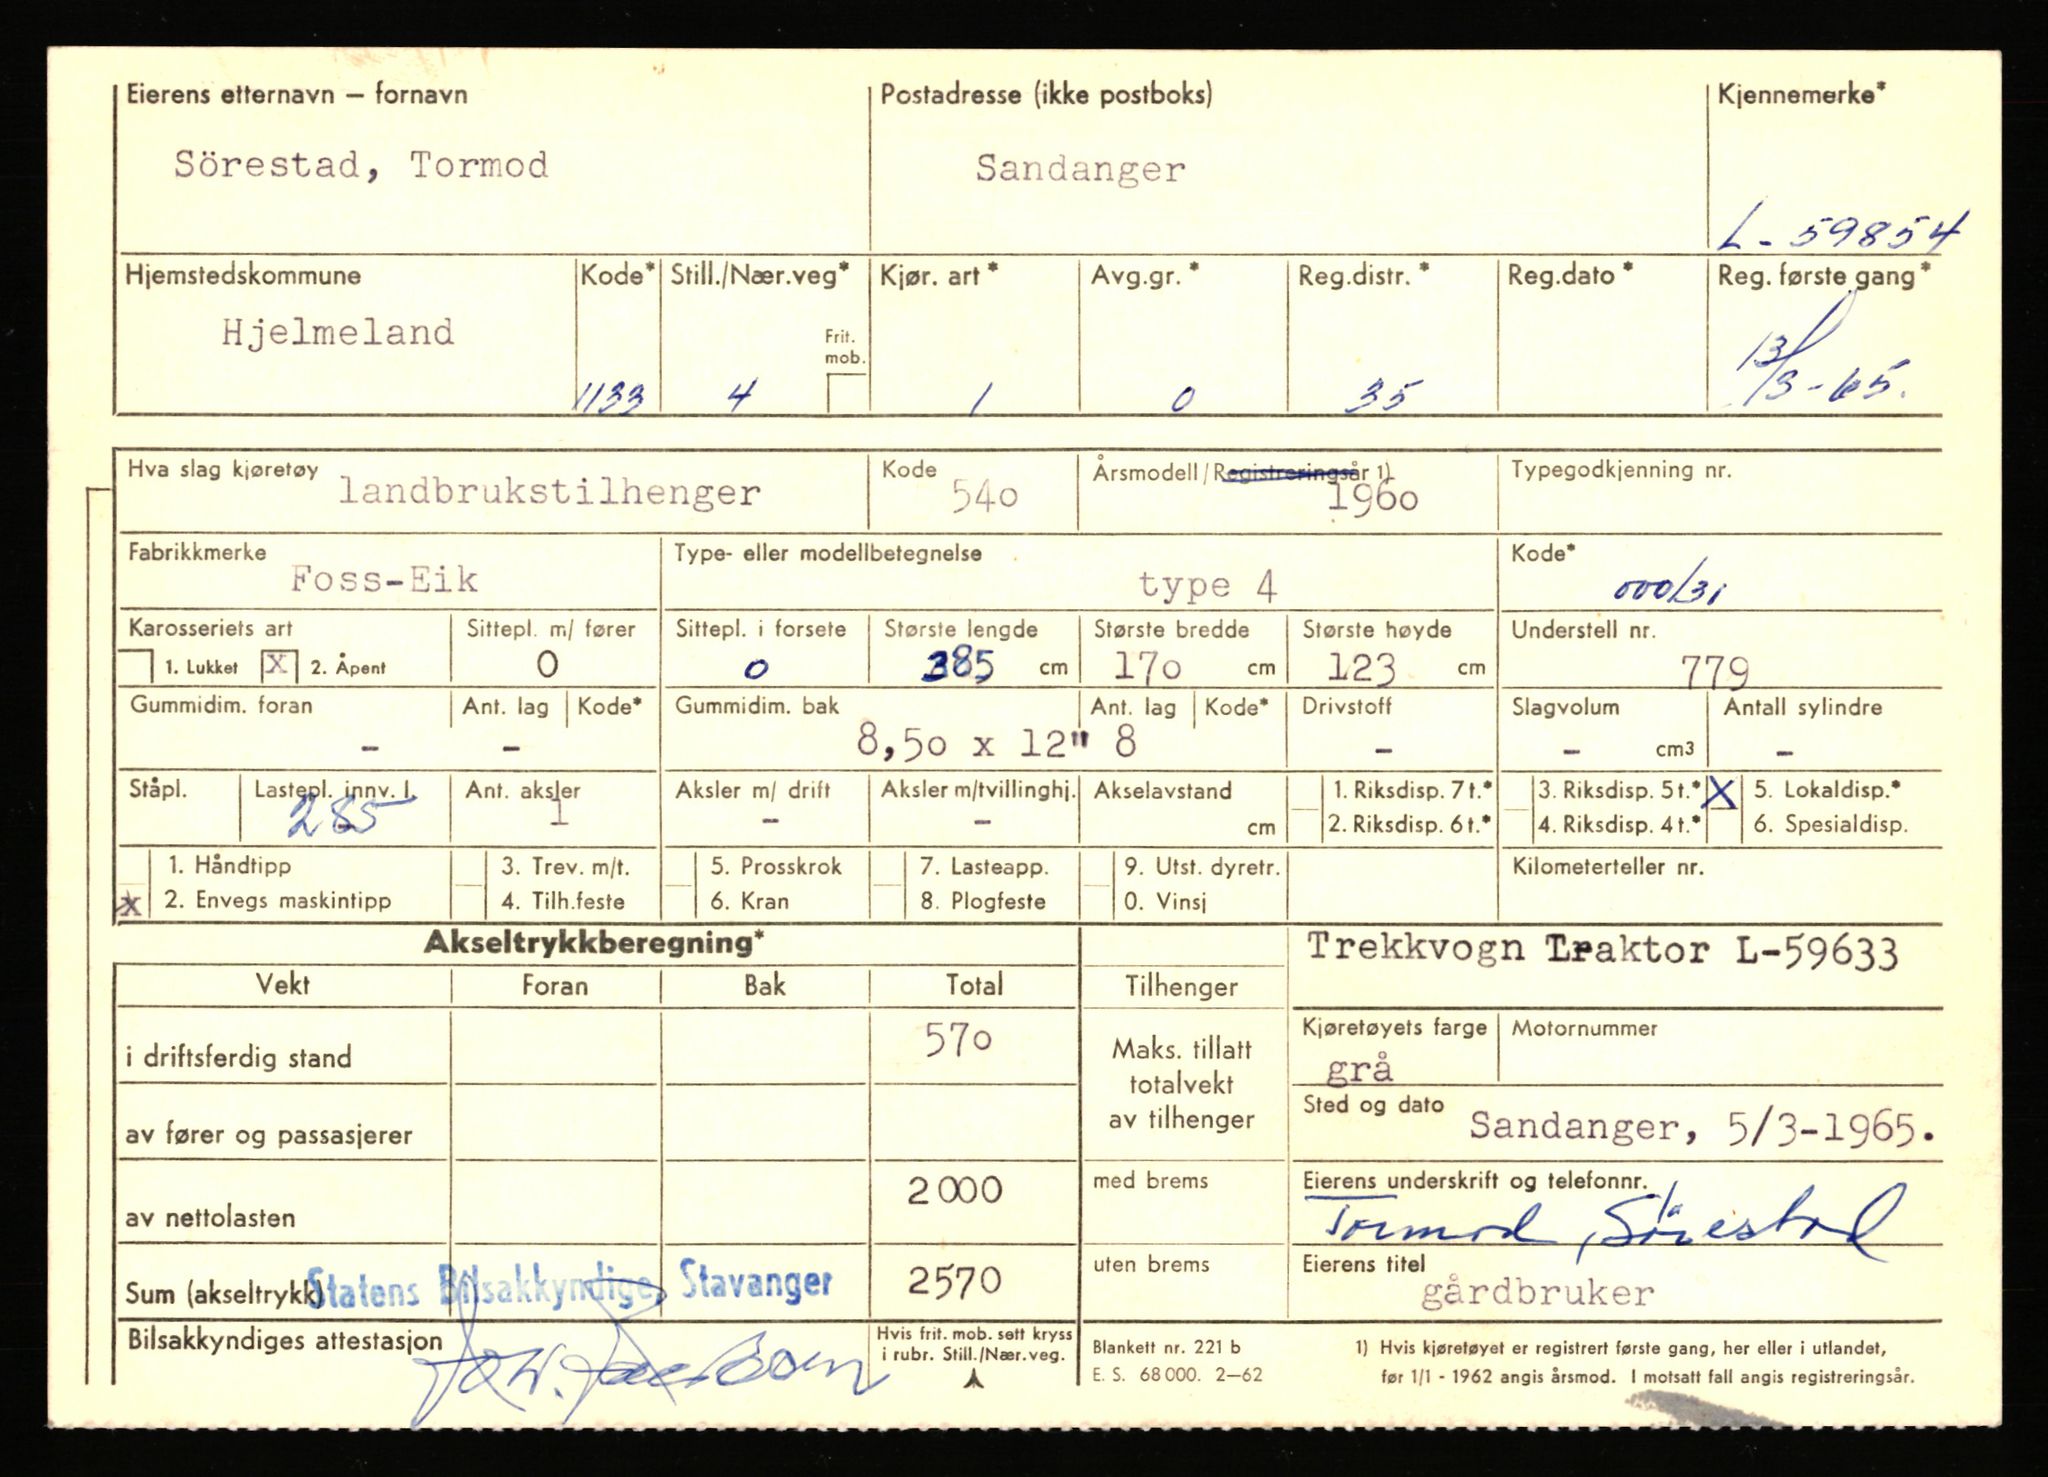 Eierens etternavn – fornavn Postadresse (ikke postboks) Kjennemerke*
Sörestad, Tormod Sandanger
L - 59854
Hjemstedskommune Kode* Still./Nær.veg* Kjør. art* Avg.gr.* Reg.distr.* Reg.dato* Reg. første gang*
Hjelmeland
Frit.
mob.
1133 4 1 0 35 13/3-65.
Hva slag kjøretøy Kode Årsmodell/Registreringsår 1) Typegodkjenning nr.
landbrukstilhenger 540 1960
Fabrikkmerke Type- eller modellbetegnelse Kode*
Foss-Eik type 4 000/31
Karosseriets art Sittepl. m/ fører Sittepl. i forsete Største lengde Største bredde Største høyde Understell nr.
1. Lukket X 2. Åpent 0 0 385 cm 170 cm 123 cm 779
Gummidim. foran Ant. lag Kode* Gummidim. bak Ant. lag Kode* Drivstoff Slagvolum Antall sylindre
- - 8,50 x 12" 8 - - cm3 -
Ståpl. Lastepl. innv. l. Ant. aksler Aksler m/ drift Aksler m/tvillinghj. Akselavstand 1. Riksdisp. 7 t.* 3. Riksdisp. 5 t.* X 5. Lokaldisp.*
285 1 - - cm 2. Riksdisp. 6 t.* 4. Riksdisp. 4 t.* 6. Spesialdisp.
1. Håndtipp 3. Trev. m/t. 5. Prosskrok 7. Lasteapp. 9. Utst. dyretr. Kilometerteller nr.
x 2. Envegs maskintipp 4. Tilh.feste 6. Kran 8. Plogfeste 0. Vinsj
Akseltrykkberegning* Trekkvogn traktor L-59633
Vekt Foran Bak Total Tilhenger
i driftsferdig stand 570 Maks. tillatt totalvekt av tilhenger Kjøretøyets farge Motornummer
grå
av fører og passasjerer Sted og dato Sandanger, 5/3-1965.
av nettolasten 2000 med brems Eierens underskrift og telefonnr.
Tormod Sörestad
Sum (akseltrykk) Statens Bilsakkyndige, Stavanger 2570 uten brems Eierens titel
gårdbruker
Bilsakkyndiges attestasjon Hvis frit. mob. sett kryss i rubr. Still./Nær.veg. Blankett nr. 221 b 1) Hvis kjøretøyet er registrert første gang, her eller i utlandet,
E. S. 68 000. 2–62 før 1/1 - 1962 angis årsmod. I motsatt fall angis registreringsår.